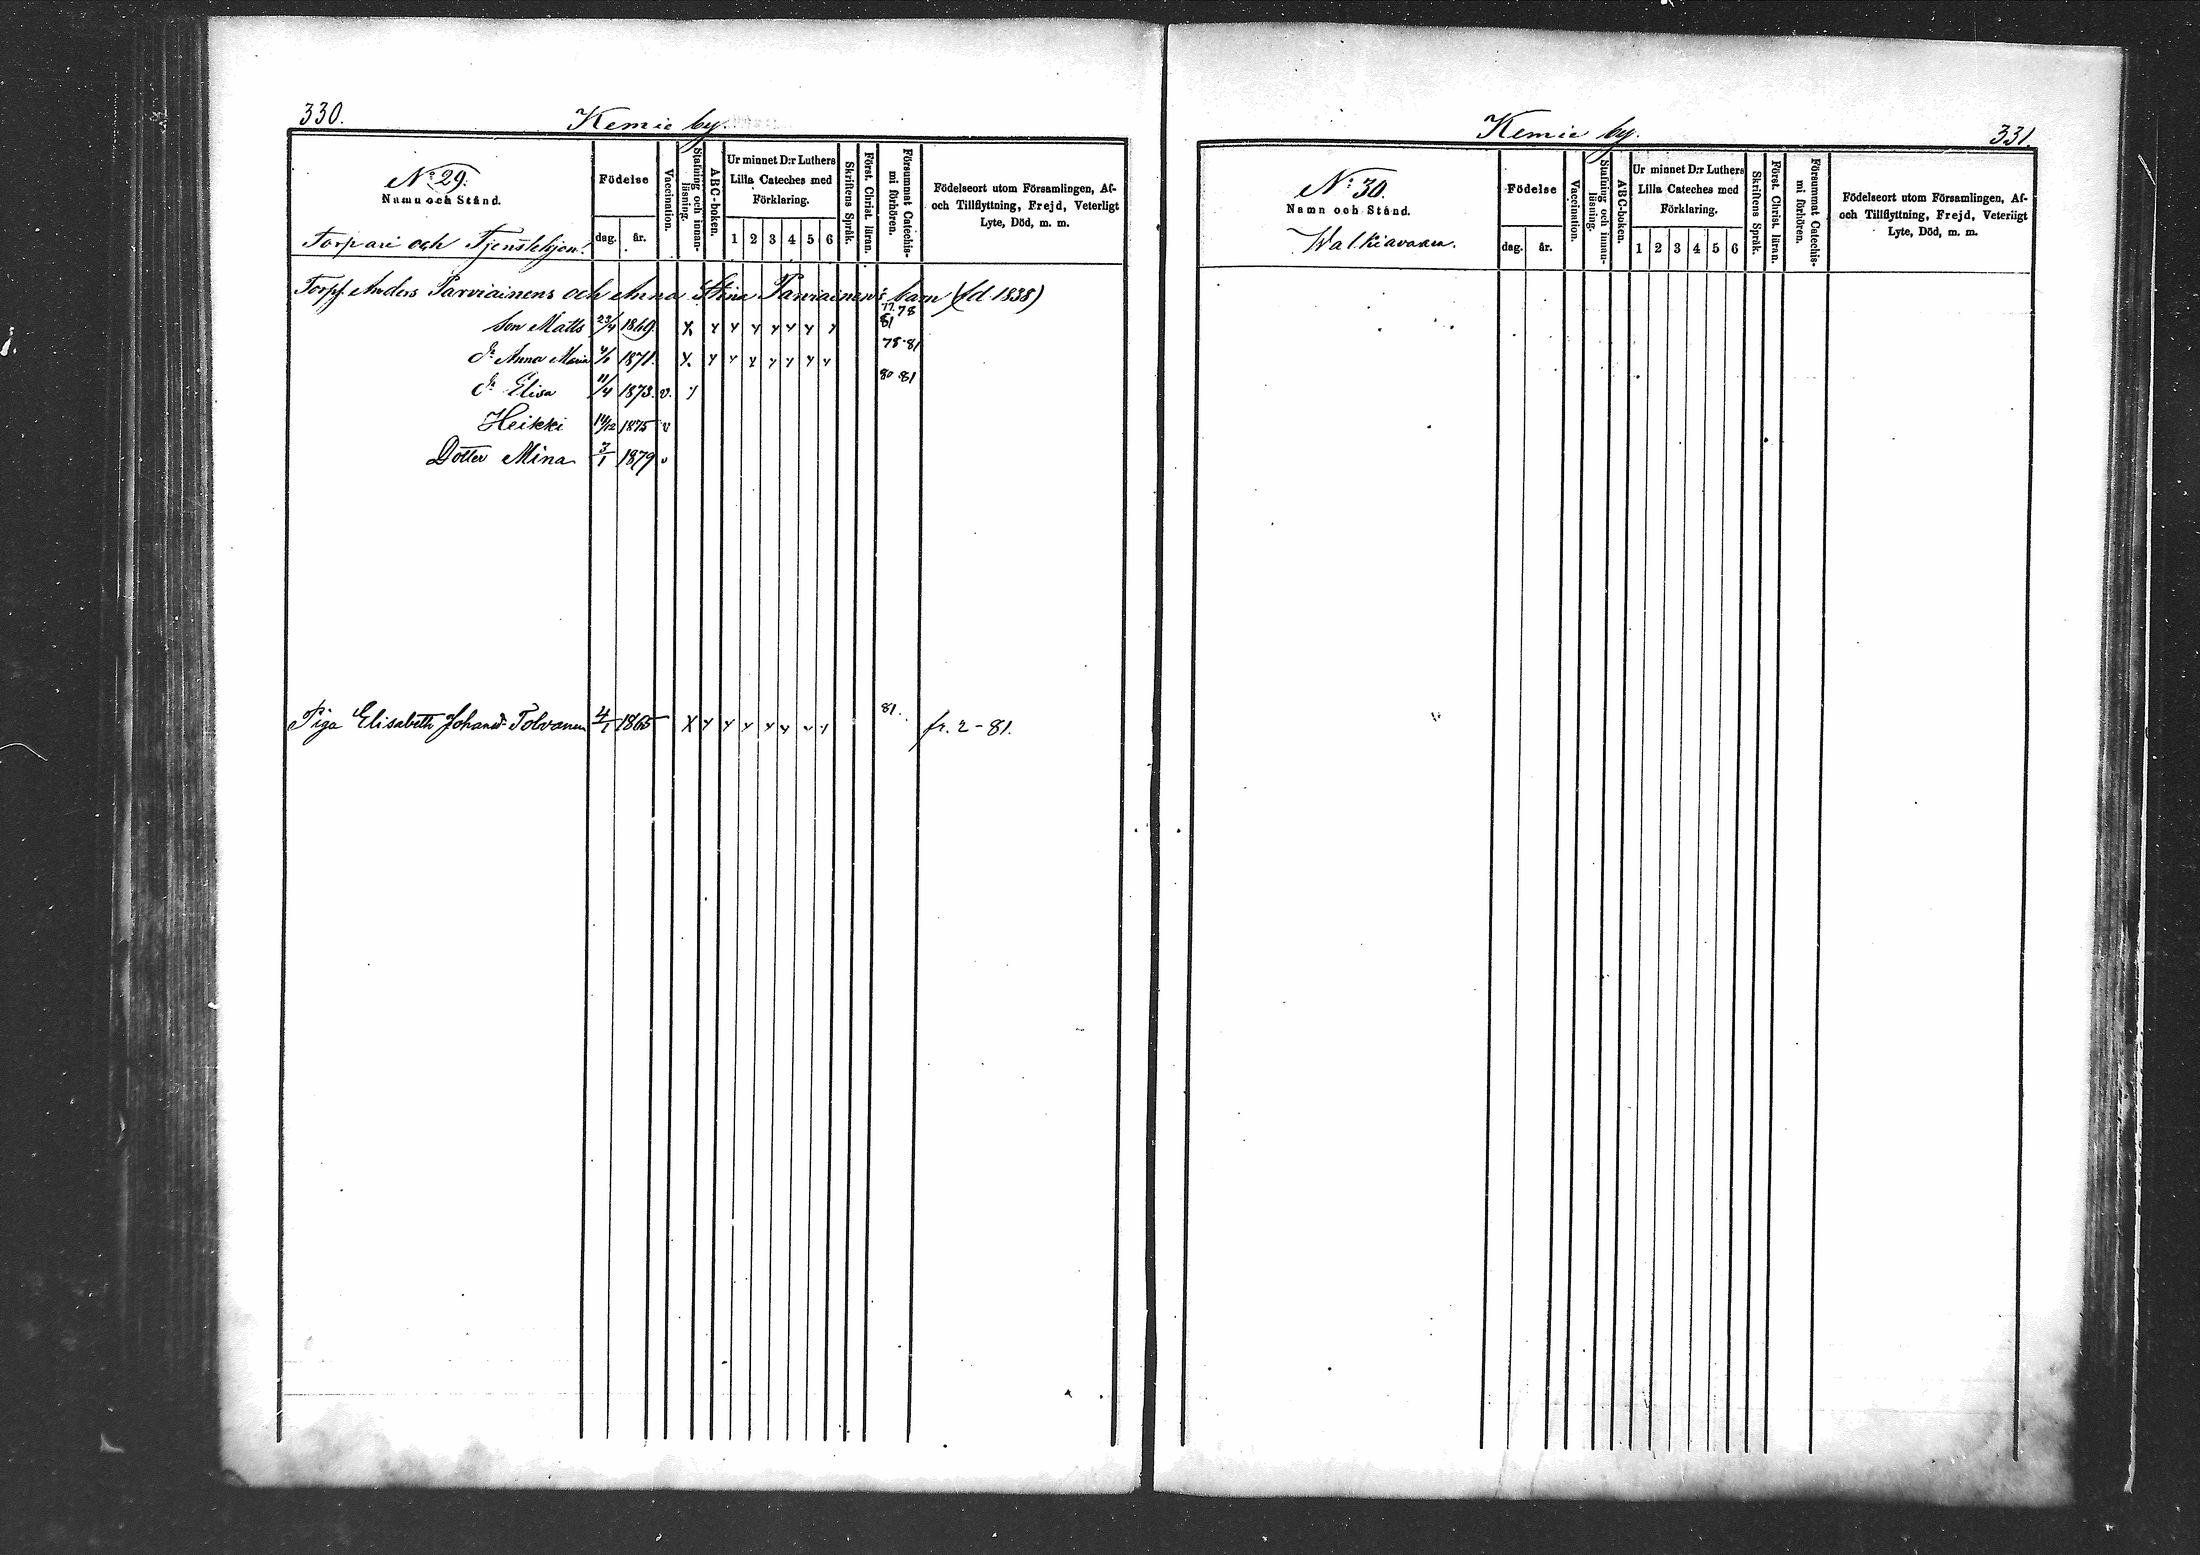 330.
Kemie by.
No 29.
Namn och Stånd.
Torpari och Tjenstehjon.
Födelse
dag. år.
Vaccination.
Stafning och innan-
läsning.
ABC-boken.
Ur minnet D:r Luthers
Lilla Cateches med
Förklaring.
1 2 3 4 5 6
Skriftens Språk.
Först. Christ. läran.
Försummat Catechis-
mi förhören.
Födelseort utom Församlingen, Af-
och Tillflyttning, Frejd, Veterligt
Lyte, Död, m. m.
Torp. Anders Parviainens och Anna Stina Parviainens barn (fd 1838)
77. 78
Son Matts 23/4 1869. x y y y y y y y 81
78. 81
Dr Anna Maria 1871. x y y y y y y y
80 81
Dr Elisa 11/4 1873. v. y
Heikki 14/12 1875 v
Dotter Mina 3/1 1879 v
Piga Elisabeth Johansd Tolvanen 4/1 1865 x y y y y y y y 81. fr. 2-81.
Kemie by.
331.
No: 30.
Namn och Stånd.
Walkiavaara.
Födelse
dag. år.
Vaccination.
Stafning och innan-
läsning.
ABC-boken.
Ur minnet D:r Luthers
Lilla Cateches med
Förklaring.
1 2 3 4 5 6
Skriftens Språk.
Först. Christ. läran.
Försummat Catechis-
mi förhören.
Födelseort utom Församlingen, Af-
och Tillflyttning, Frejd, Veterligt
Lyte, Död, m. m.